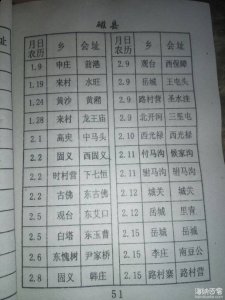 磁县
月日农历 乡 会址 月日农历 乡 会址
1.9 申庄 2.9 观台 西保障
1.19 来村 水旺 2.9 岳城 王屯头
1.24 黄沙 黄沙 2.9 路村营 圣水洼
1.28 来村 龙王庙 2.9 北开河 三里屯
2.1 高臾 中马头 2.10 西光禄 西光禄
2.2 固义 西固义 2.11 付马沟 侯家沟
2.2 时村营 下七恒 2.11 驸马沟 驸马沟
2.2 古佛 东古佛 2.12 城关 城关
2.5 观台 东艾口 2.12 岳城 里青
2.5 白塔 东玉曹 2.12 岳城 岳城
2.6 东槐树 尹家桥 2.15 李庄 南豆公
2.8 固义 韩庄 2.15 路村寨 路村营
51